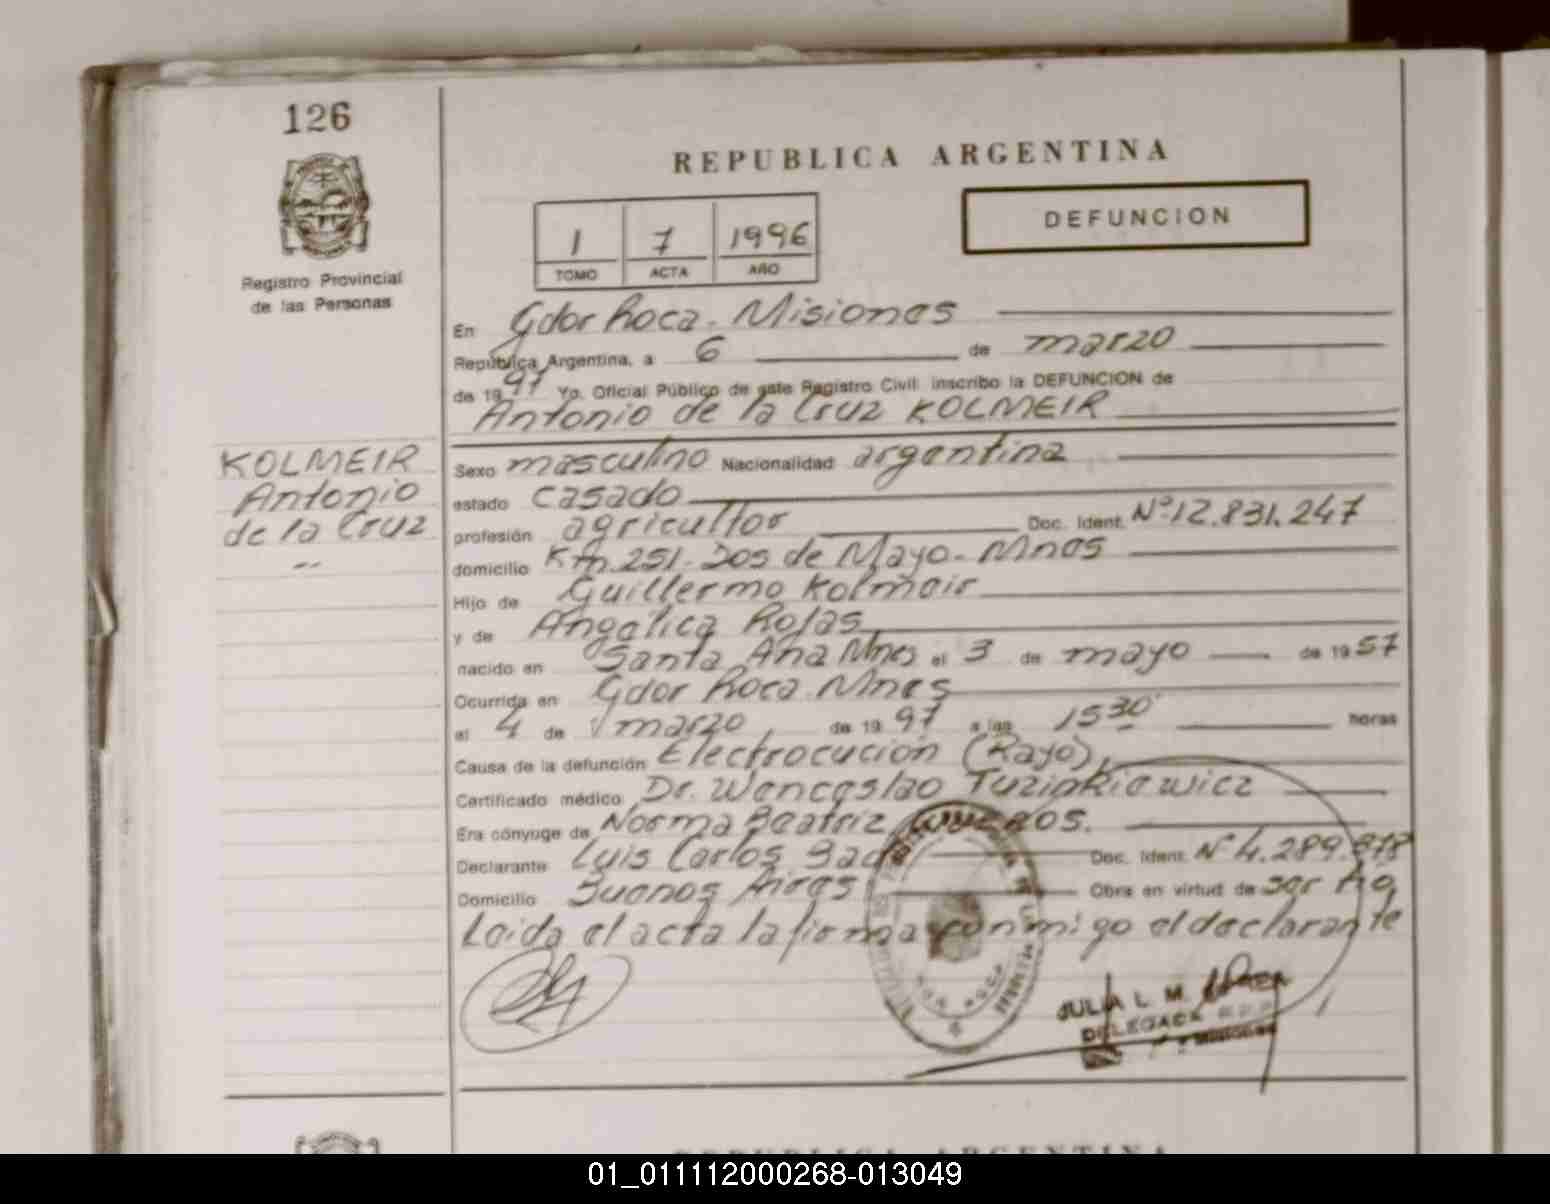 126
REPUBLICA ARGENTINA
DEFUNCION
1 7 1996
TOMO ACTA AÑO
Registro Provincial
de las Personas
En Gdor Roca - Misiones
República Argentina, a 6 de marzo
de 1997 Yo, Oficial Público de este Registro Civil inscribo la DEFUNCION de
Antonio de la Cruz KOLMEIR
KOLMEIR
Antonio
de la Cruz
Sexo masculino Nacionalidad argentina
estado casado
profesión agricultor Doc. Ident. Nº 12.831.247
domicilio Km. 251 - Dos de Mayo - Mnes
Hijo de Guillermo Kolmeir
y de Angelica Rojas
nacido en Santa Ana Mnes el 3 de mayo de 1957
Ocurrida en Gdor Roca Mnes
el 4 de marzo de 1997 a las 15 30 horas
Causa de la defunción Electrocución (Rayo)
Certificado médico Dr. Wenceslao
Era cónyuge de Norma Beatriz
Declarante Luis Carlos Doc. Ident. Nº 4.289.878
Domicilio Buenos Aires Obra en virtud de ser
Leida el acta la firma conmigo el declarante
JULIA L. M.
DELEGADA R.P.P.
REPUBLICA ARGENTINA
01_011112000268-013049